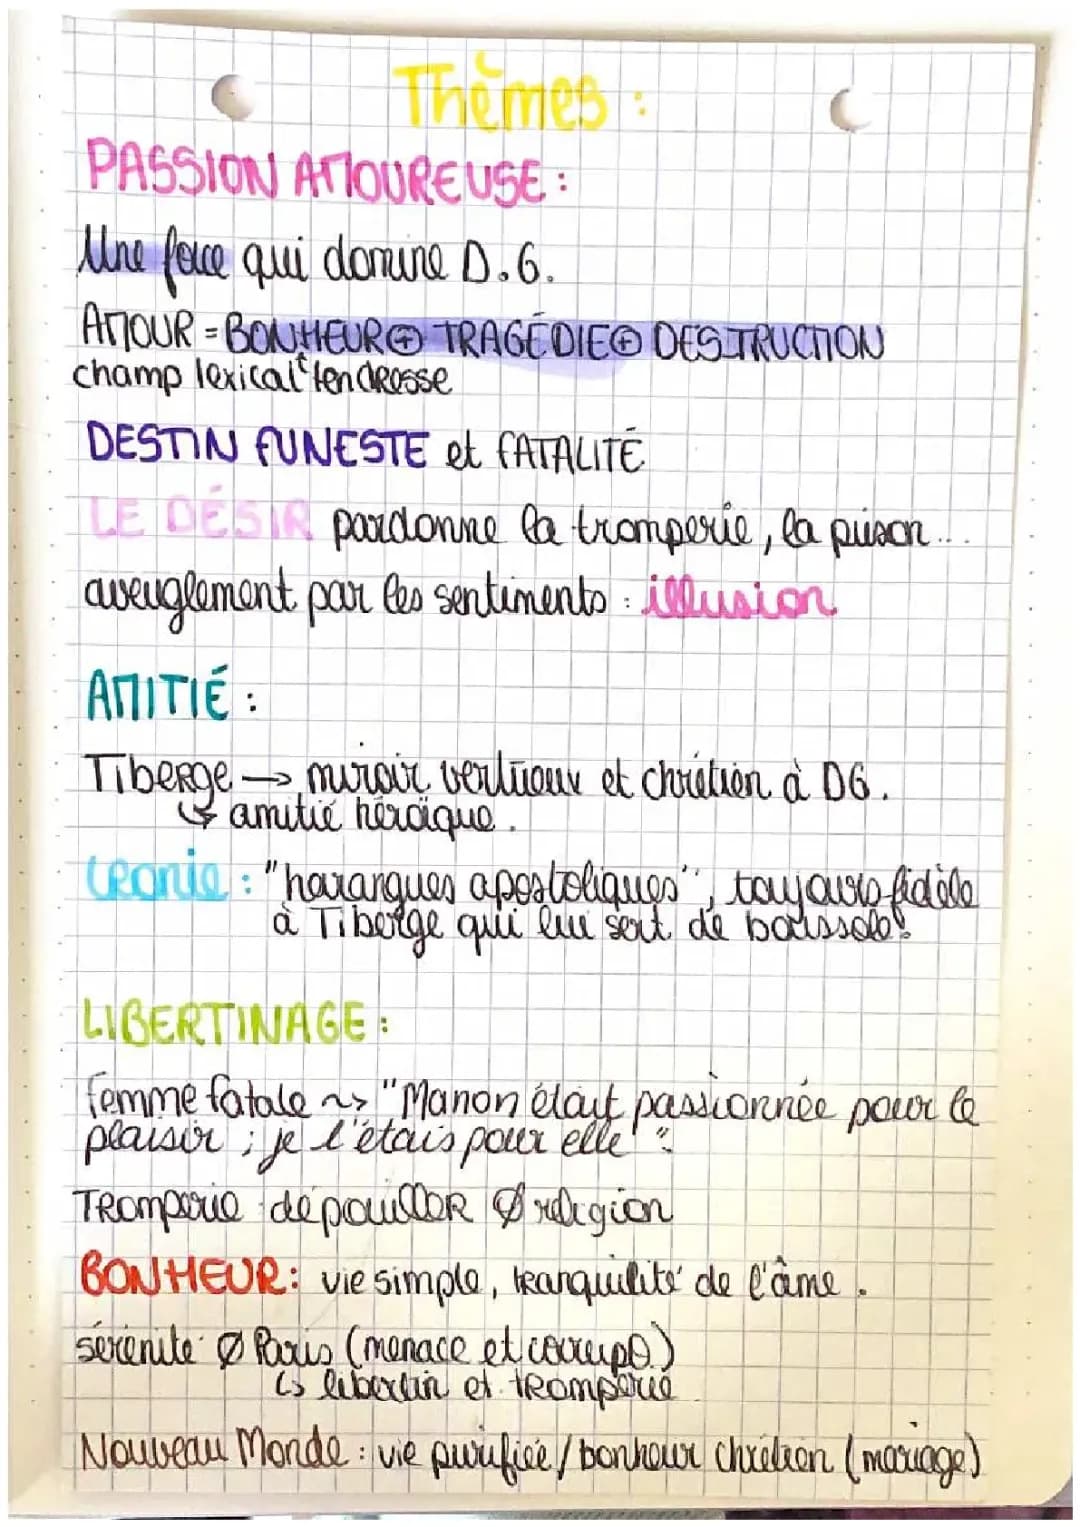 Thèmes :
PASSION AMOUREUSE :
Une force qui domine D.G.
AMOUR = BONHEUR ⊕ TRAGÉDIE ⊕ DESTRUCTION
champ lexical tendresse
DESTIN FUNESTE et FATALITÉ
LE DÉSIR pardonne la tromperie, la prison...
aveuglement par les sentiments : illusion
AMITIÉ :
Tiberge → miroir vertueux et chrétien à DG.
↳ amitié héroïque.
Ironie : "harangues apostoliques", toujours fidèle
à Tiberge qui lui sert de boussole.
LIBERTINAGE :
Femme fatale ~> "Manon était passionnée pour le
plaisir ; je l'étais pour elle".
Tromperie dépouiller Ø religion
BONHEUR : vie simple, tranquilité de l'âme.
sérénité Ø Paris (menace et corrup⊖)
↳ libertin et tromperie
Nouveau Monde : vie purifiée / bonheur chrétien (mariage)